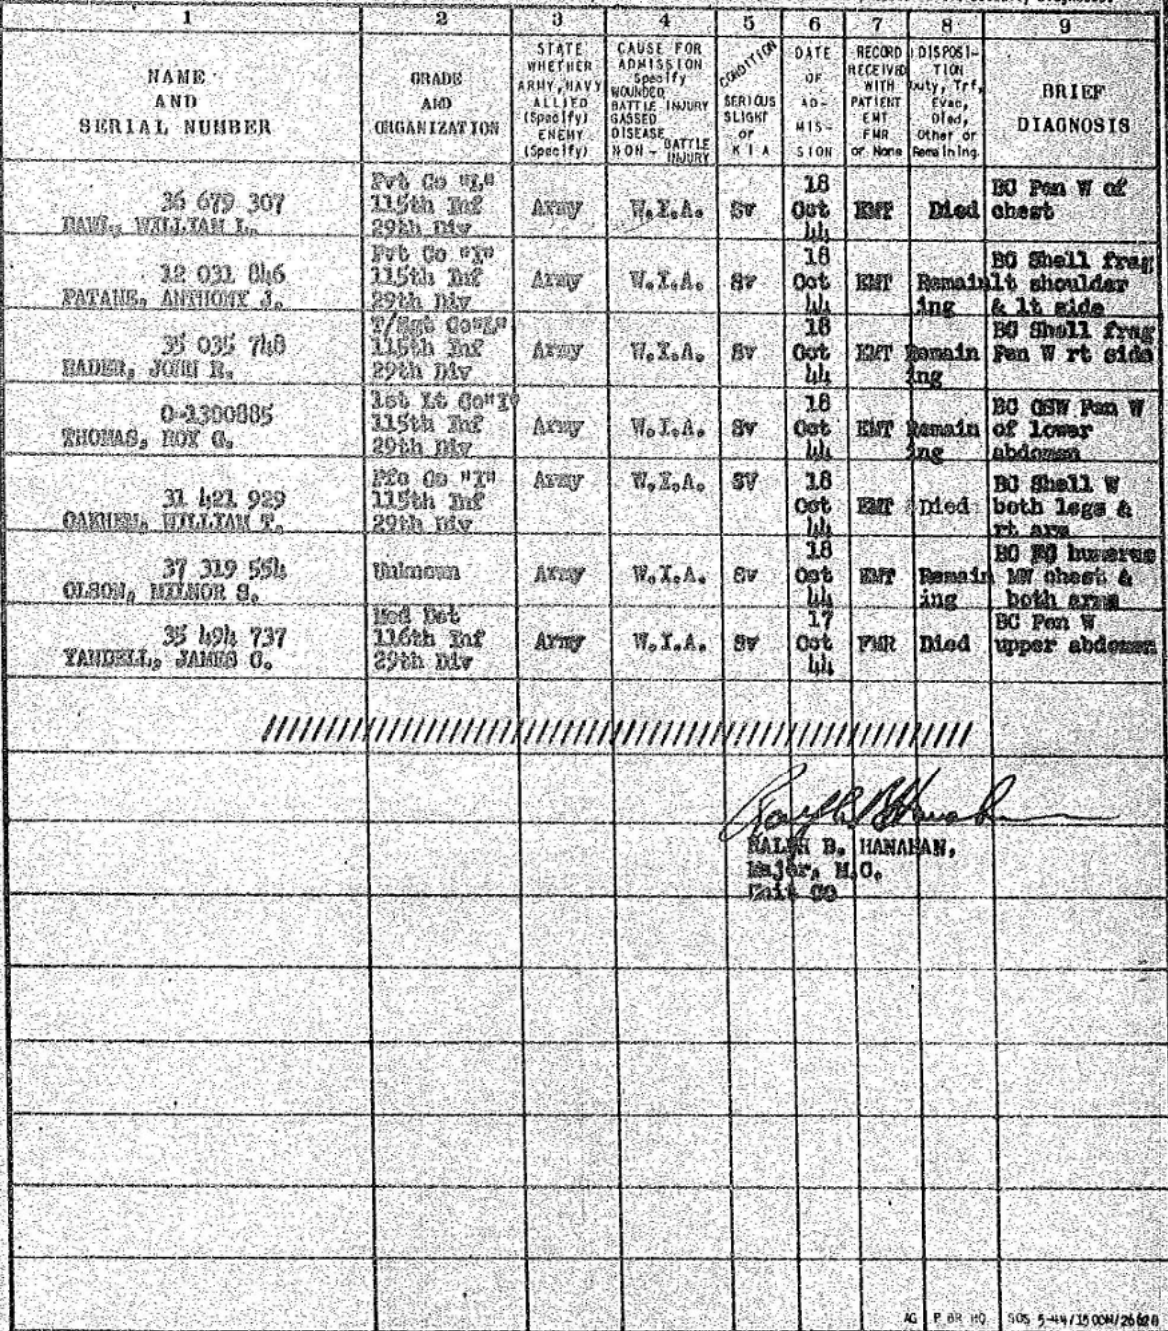 1 2 3 4 5 6 7 8 9
NAME AND SERIAL NUMBER
GRADE AND ORGANIZATION
STATE WHETHER ARMY, NAVY ALLIED (Specify) ENEMY (Specify)
CAUSE FOR ADMISSION Specify WOUNDED BATTLE INJURY GASSED DISEASE NON-BATTLE INJURY
CONDITION SERIOUS SLIGHT or K I A
DATE OF AD-MIS-SION
RECORD RECEIVED WITH PATIENT EMT FMR or None
DISPOSI-TION Duty, Trf, Evac, Died, Other or Remaining.
BRIEF DIAGNOSIS
36 679 307
WILLIAM L.
Pvt Co "L" 115th Inf 29th Div
Army W.I.A. Sv 18 Oct 44 EMT Died
BC Pen W of chest
12 031 846
PATANE, ANTHONY J.
Pvt Co "I" 115th Inf 29th Div
Army W.I.A. Sv 18 Oct 44 EMT Remaining
BC Shell frag lt shoulder & lt side
35 035 748
BADER, JOHN R.
T/Sgt Co"L" 115th Inf 29th Div
Army W.I.A. Sv 18 Oct 44 EMT Remain ing
BC Shell frag Pen W rt side
O-1300885
THOMAS, ROY G.
1st Lt Co"I" 115th Inf 29th Div
Army W.I.A. Sv 18 Oct 44 EMT Remain ing
BC GSW Pen W of lower abdomen
31 421 929
WILLIAM T.
Pfc Co "I" 115th Inf 29th Div
Army W.I.A. SV 18 Oct 44 EMT Died
BC Shell W both legs & rt arm
37 319 554
OLSON, MILNOR S.
Unknown
Army W.I.A. Sv 18 Oct 44 EMT Remain ing
BC FC humerus MW chest & both arms
35 494 737
YANDELL, JAMES O.
Med Det 116th Inf 29th Div
Army W.I.A. Sv 17 Oct 44 FMR Died
BC Pen W upper abdomen
RALPH B. HANAHAN,
Major, M.C.
Unit CO
AG P BR HQ SOS 5-44/1500M/26628